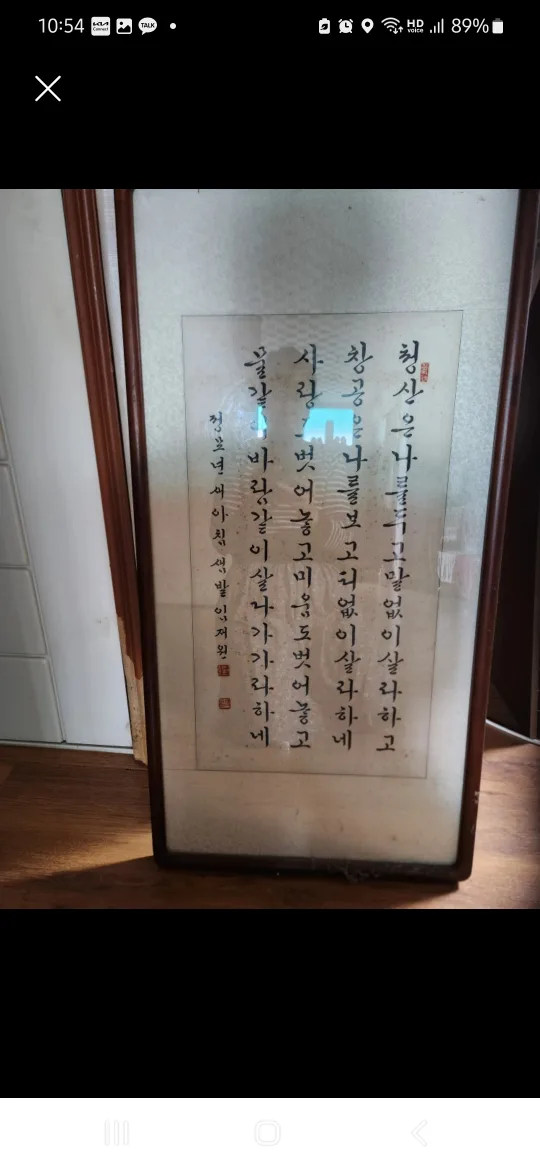 10:54
KIA Connect
TALK
HD voice
89%
청산은나를두고말없이살라하고
창공은나를보고티없이살라하네
사랑 벗어놓고미움도벗어놓고
물같 바람같이살다가가라하네
정묘년새아침샘발임재원